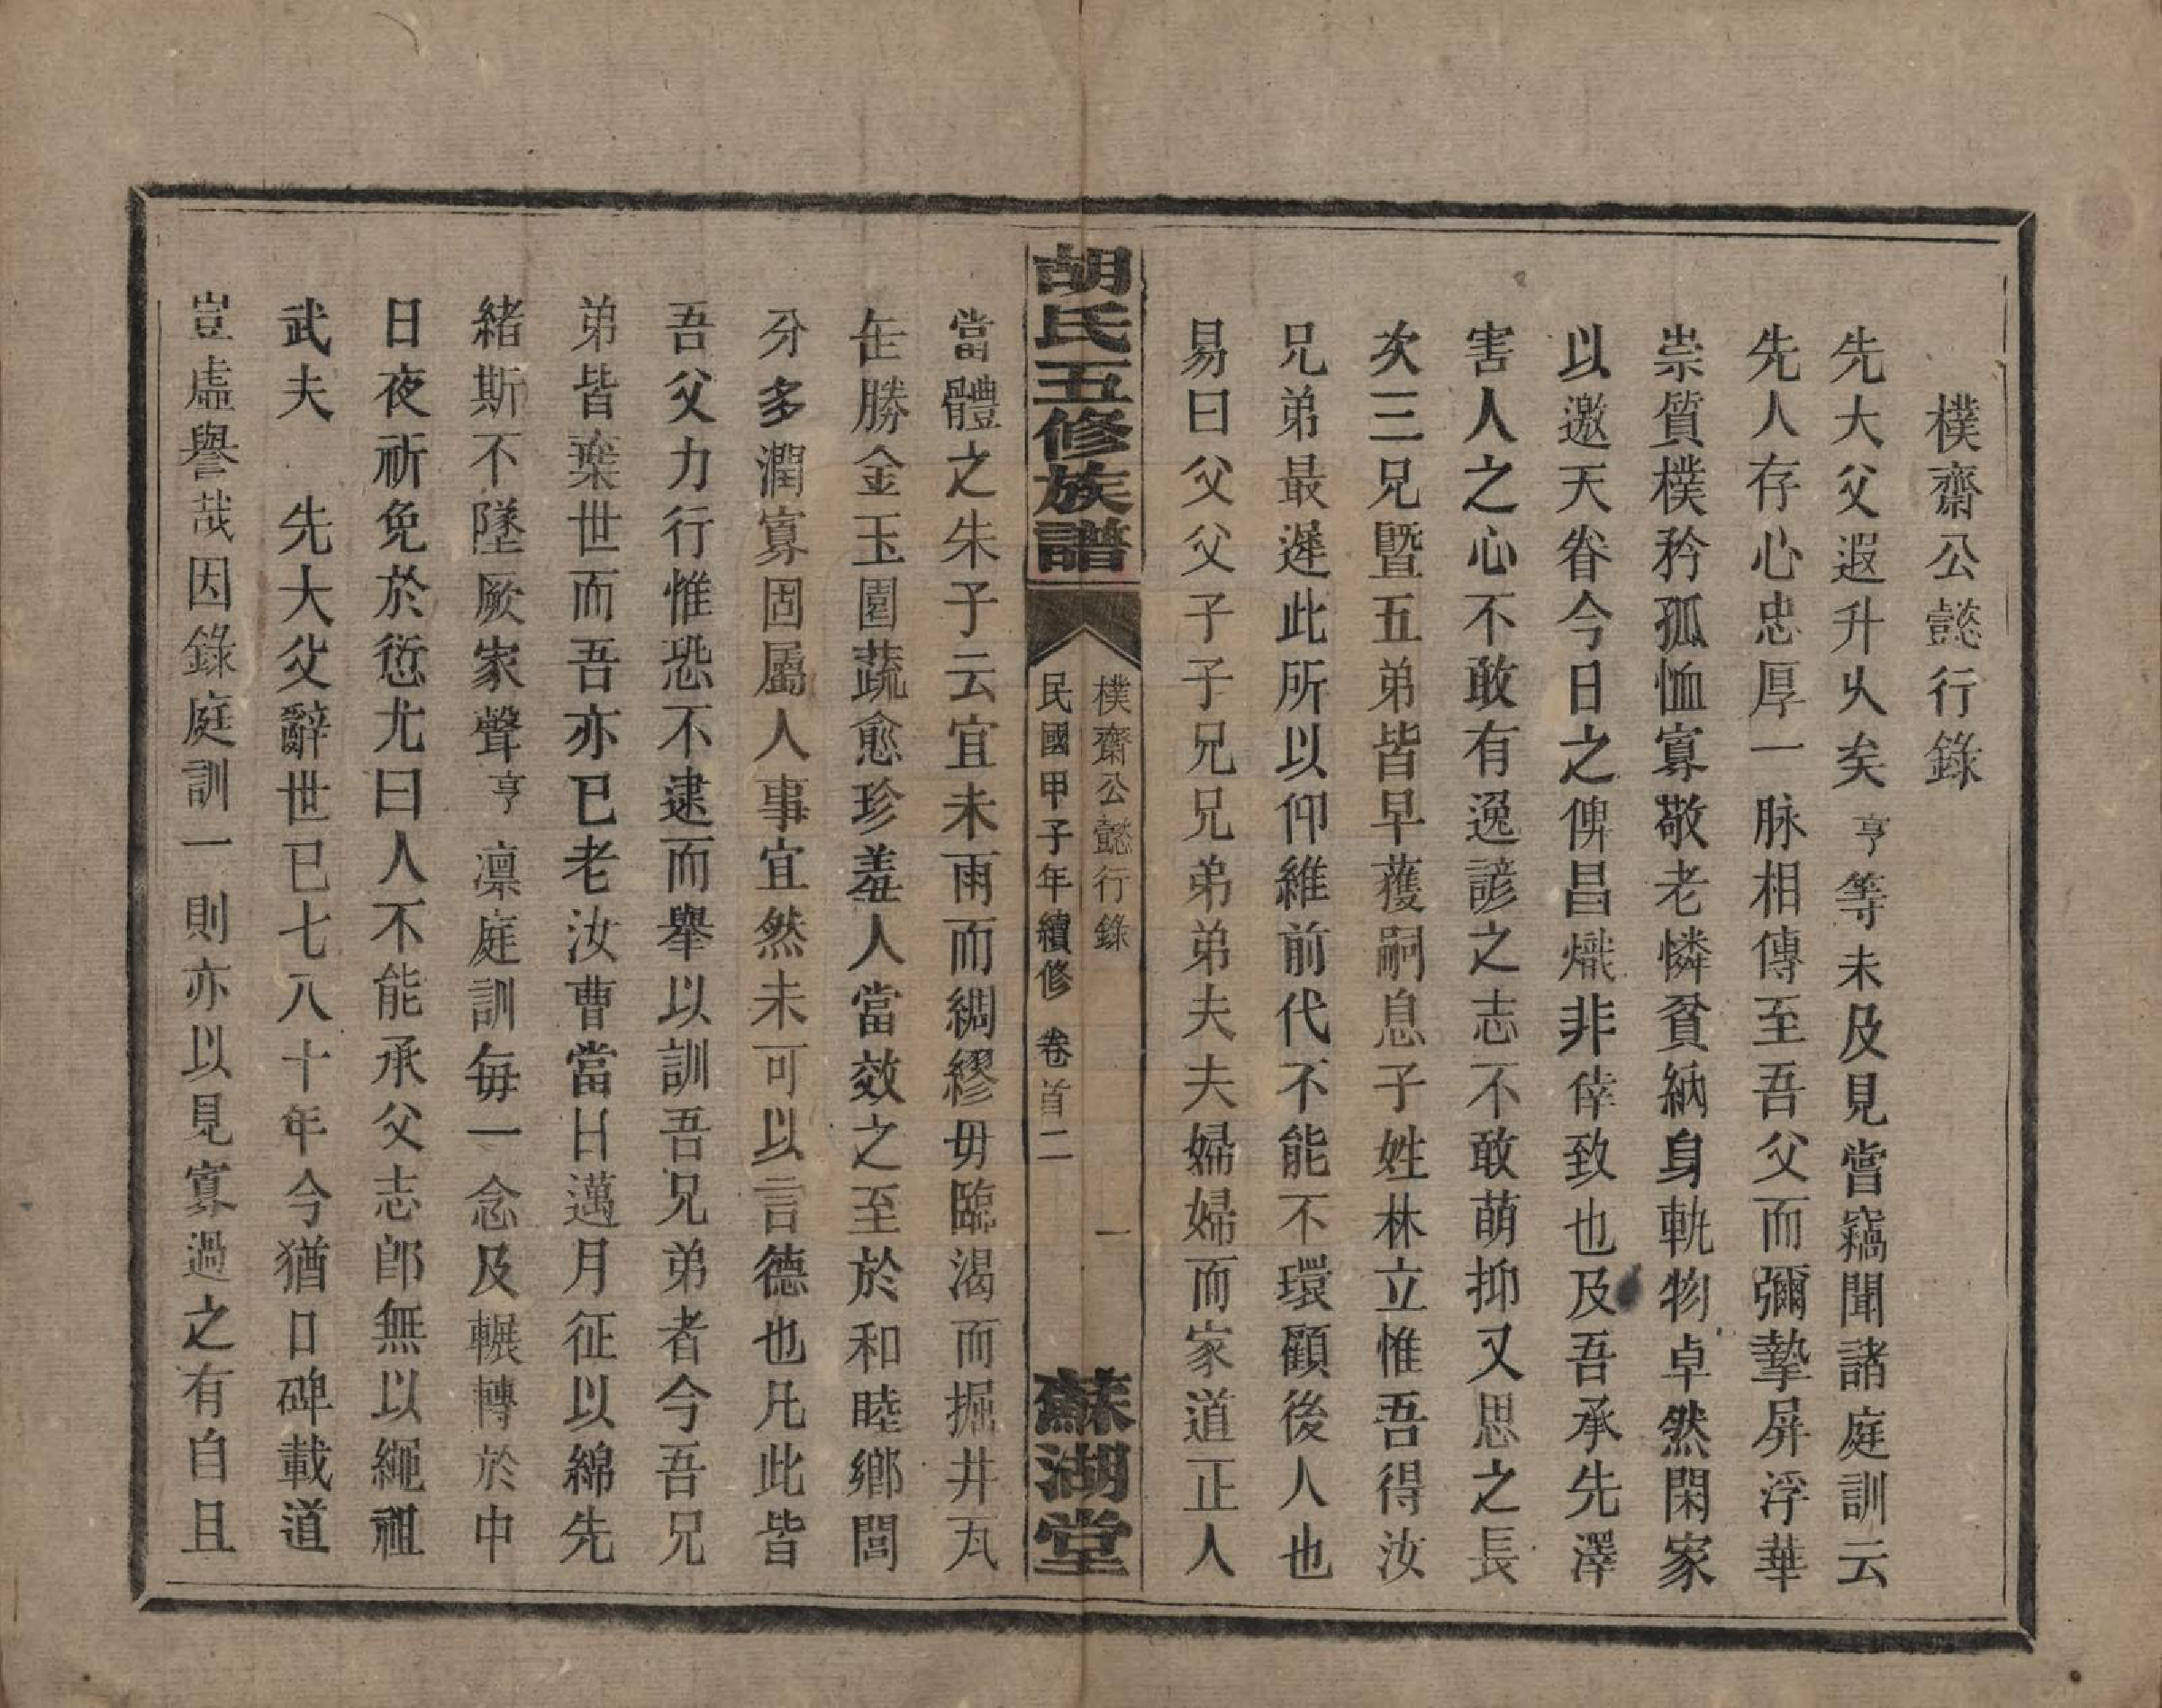 樸齋公懿行錄
先大父遐升久矣亨等未及見嘗竊聞諸庭訓云
先人存心忠厚一脉相傳至吾父而彌摯屏浮華
崇質樸矜孤恤寡敬老憐貧納身軌物卓然閑家
以邀天眷今日之俾昌熾非倖致也及吾承先澤
害人之心不敢有逸諺之志不敢萌抑又思之長
次三兄暨五弟皆早獲嗣息子姓林立惟吾得汝
兄弟最遲此所以仰維前代不能不環顧後人也
易曰父父子子兄兄弟弟夫夫婦婦而家道正人
胡氏五修族譜
樸齋公懿行錄 一
民國甲子年續修 卷首二
蘇湖堂
當體之朱子云宜未雨而綢繆毋臨渴而掘井瓦
缶勝金玉園蔬愈珍羞人當效之至於和睦鄉閭
分多潤寡固屬人事宜然未可以言德也凡此皆
吾父力行惟恐不逮而舉以訓吾兄弟者今吾兄
弟皆棄世而吾亦已老汝曹當日邁月征以綿先
緒斯不墜厥家聲亨凛庭訓每一念及輾轉於中
日夜祈免於愆尤曰人不能承父志卽無以繩祖
武夫 先大父辭世已七八十年今猶口碑載道
豈虛譽哉因錄庭訓一則亦以見寡過之有自且